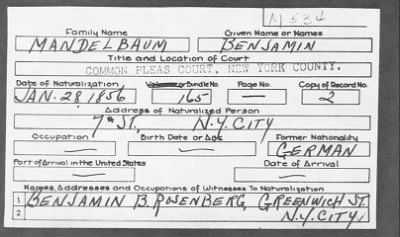 M 534
Family Name Given Name or Names
MANDELBAUM BENJAMIN
Title and Location of Court
COMMON PLEAS COURT, NEW YORK COUNTY.
Date of Naturalization Volume or Bundle No. Page No. Copy of Record No.
JAN. 28, 1856 165 — 2
Address of Naturalized Person
7th ST. N.Y. CITY
Occupation Birth Date or Age Former Nationality
— — GERMAN
Port of Arrival in the United States Date of Arrival
— —
Names, Addresses and Occupations of Witnesses To Naturalization
1 BENJAMIN B. ROSENBERG, GREENWICH ST.
2 N.Y. CITY.